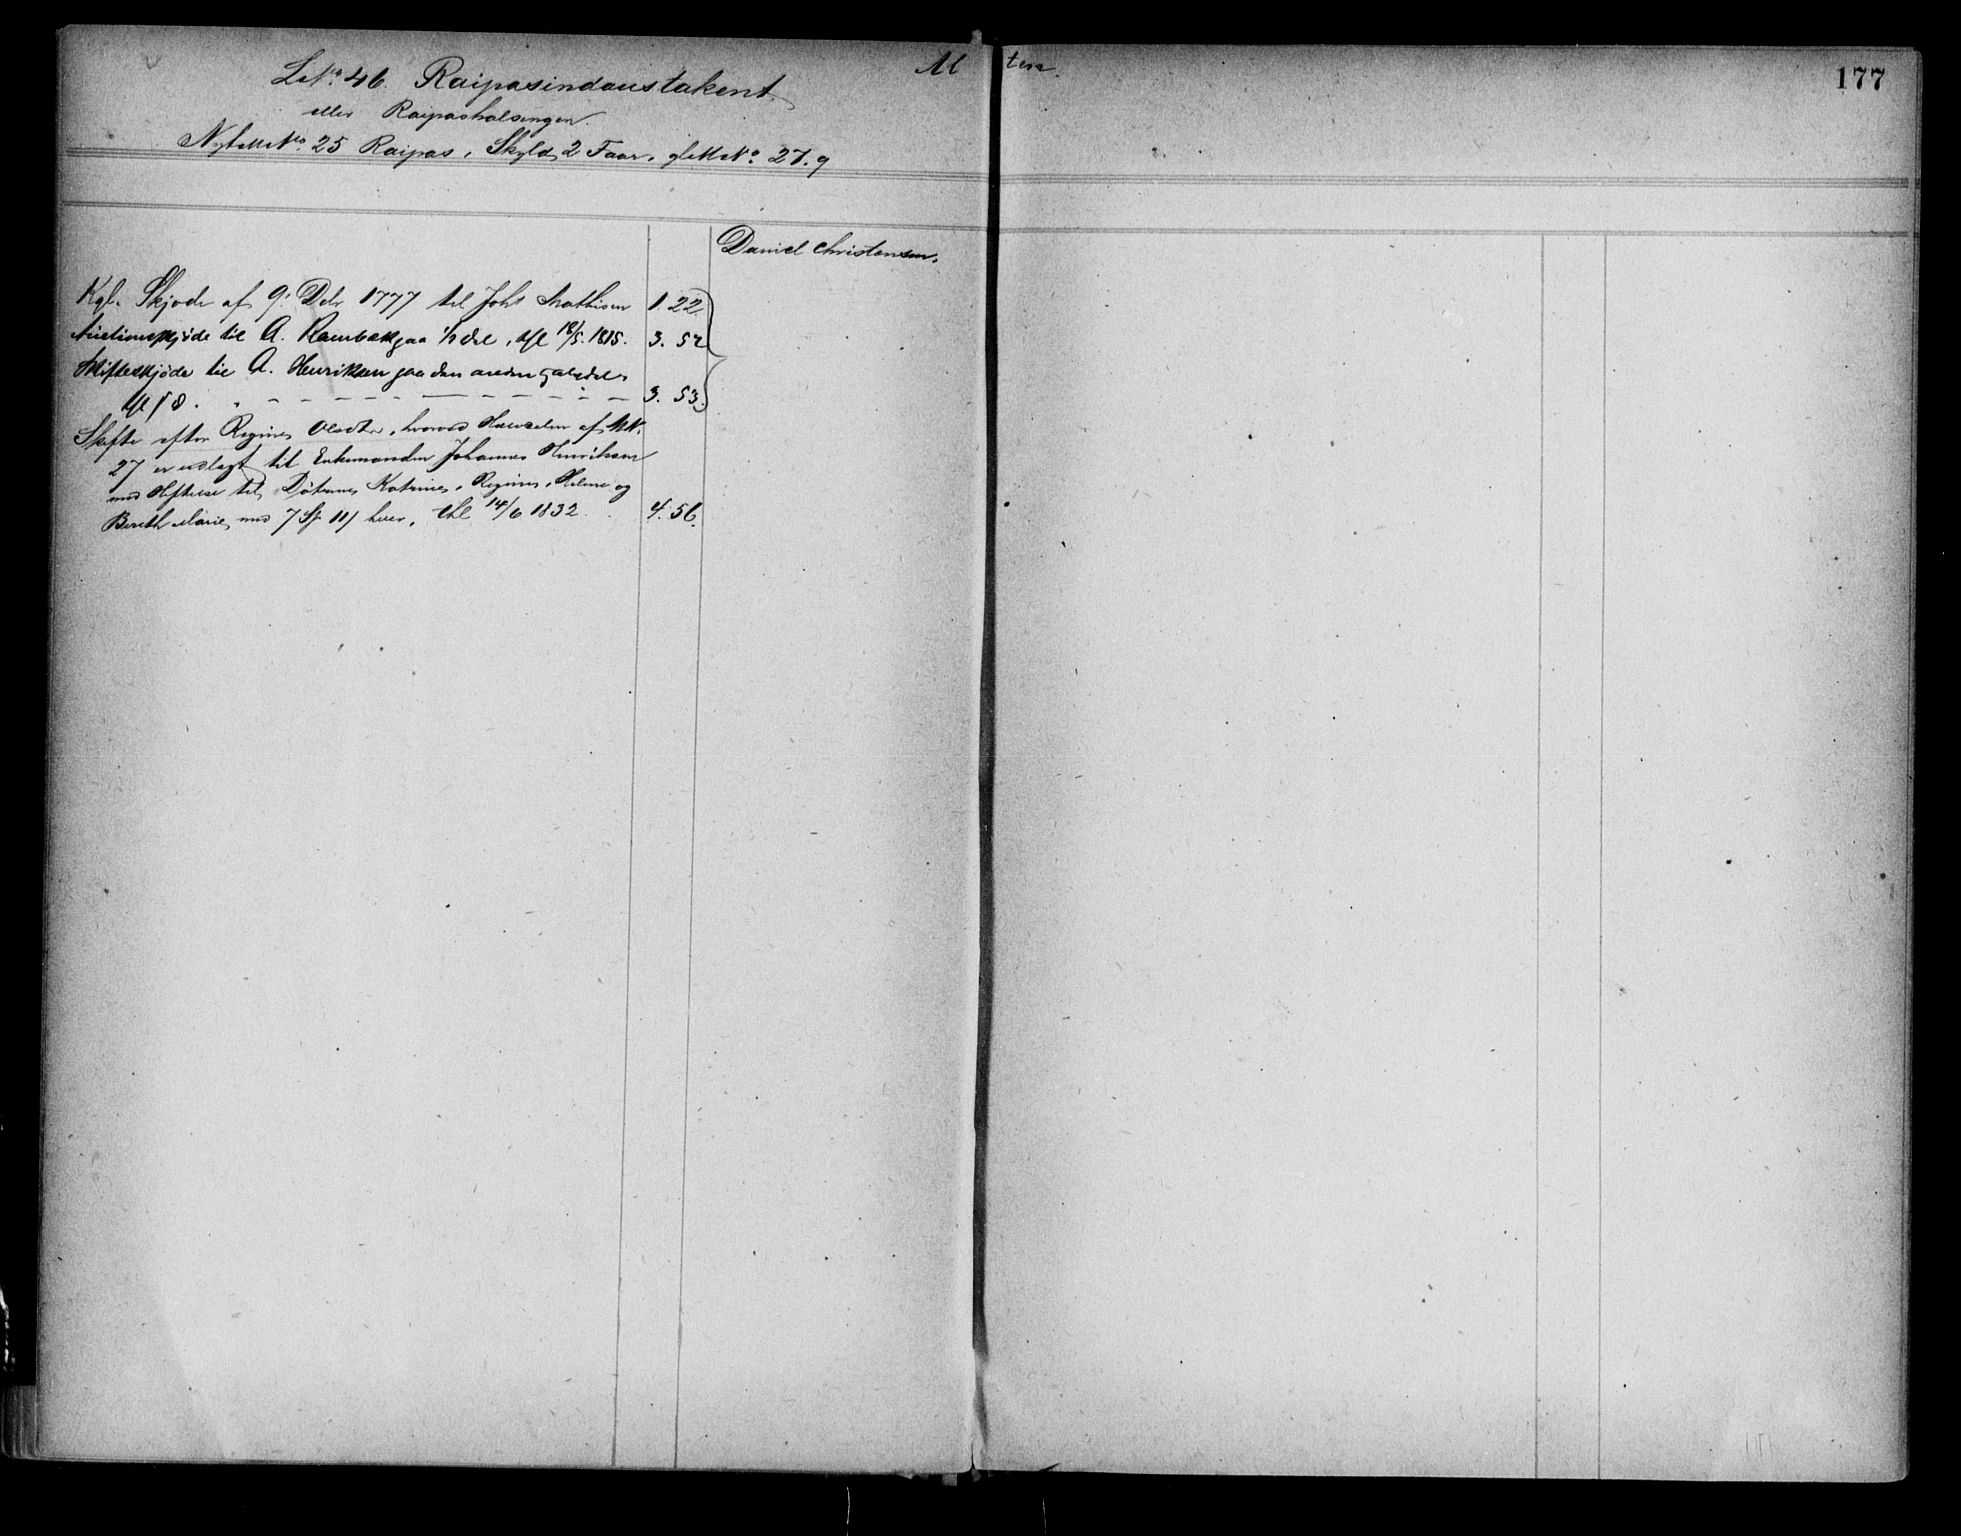 Al ten.
177
L. No. 46. Raipasindaustakent
eller Raipashalsingen.
Ny Matr. No. 25 Raipas, Skyld 2 Faar, gl. M. No. 27.9
Daniel Christensen.
Kgl. Skjøde af 9. Debr 1777 til Johs Mathisen 1. 22.
Auctionsskjøde til A. Rambæk paa ½ Del, thl 18/5. 1815. 3. 52
Skifteskjøde til A. Henriksen paa den anden halvdel,
thl s. D. 3. 53.
Skifte efter Regine Olsdtr, hvorved af M.N.
27 er udlagt til Enkemanden Johannes Henriksen
med Heftelse til Døtrene Katrine, Regine, Helene og
Bereth Marie, med 7 Sp 11 hver, thl 14/6 1832. 4. 56.